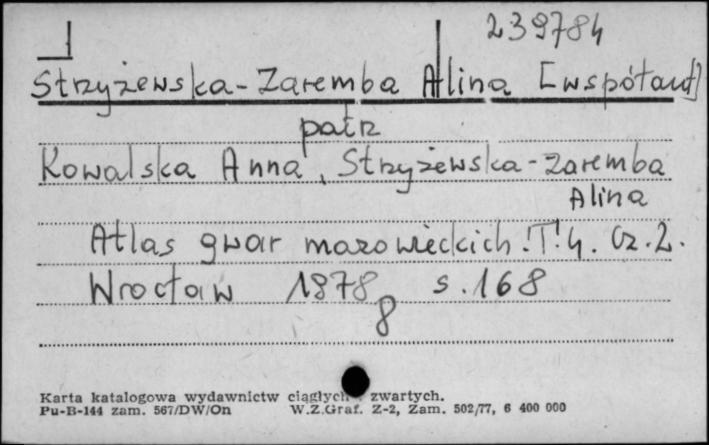 239784
Strzyżewska-Zaremba Alina [współaut]
patrz
Kowalska Anna, Strzyżewska-Zaremba
Alina
Atlas gwar mazowieckich. T. 4. Cz. 2.
Wrocław 1978 s. 168
8
Karta katalogowa wydawnictw ciągłych zwartych.
Pu-B-144 zam. 567/DW/On W.Z.Graf. Z-2, Zam. 502/77, 6 400 000